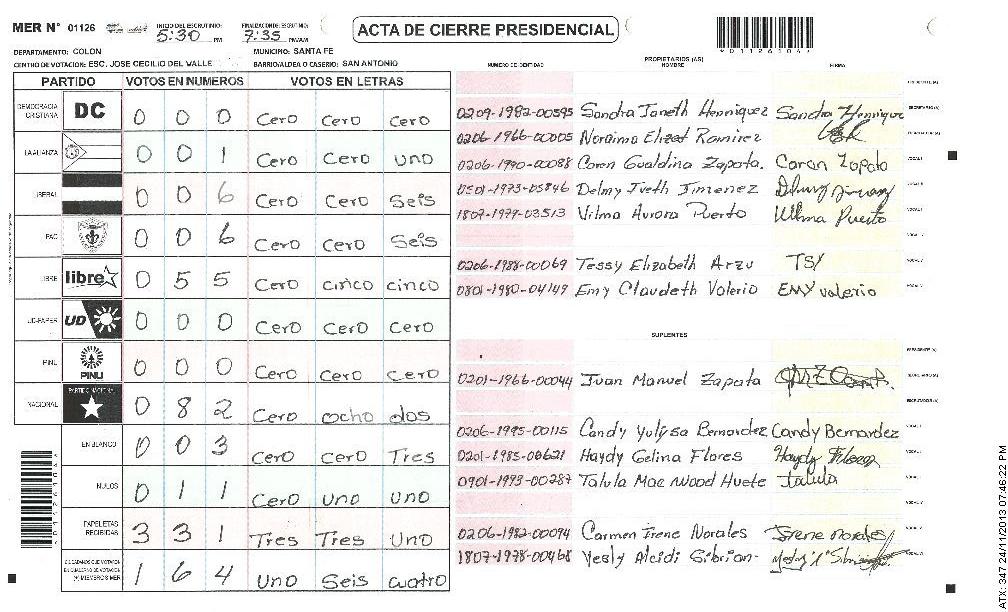 MER N° 01126 INICIO DEL ESCRUTINIO: 5:30 PM FINALIZACION DE ESCRUTINIO: 7:35 PM/AM
ACTA DE CIERRE PRESIDENCIAL
DEPARTAMENTO: COLON MUNICIPIO: SANTA FE
CENTRO DE VOTACION: ESC. JOSE CECILIO DEL VALLE BARRIO/ALDEA O CASERIO: SAN ANTONIO
PARTIDO VOTOS EN NUMEROS VOTOS EN LETRAS
DEMOCRACIA CRISTIANA DC 0 0 0 Cero Cero Cero
LA ALIANZA 0 0 1 Cero Cero uno
LIBERAL 0 0 6 Cero Cero Seis
PAC 0 0 6 Cero Cero Seis
LIBRE libre 0 5 5 Cero cinco cinco
UD-FAPER UD 0 0 0 Cero Cero Cero
PINU PINU 0 0 0 Cero Cero Cero
NACIONAL PARTIDO NACIONAL 0 8 2 Cero ocho dos
EN BLANCO 0 0 3 Cero Cero Tres
NULOS 0 1 1 Cero uno uno
PAPELETAS RECIBIDAS 3 3 1 Tres Tres Uno
CIUDADANOS QUE VOTARON EN CUADERNO DE VOTACION (+) MIEMBROS MER 1 6 4 Uno Seis cuatro
PROPIETARIOS (AS)
NUMERO DE IDENTIDAD NOMBRE FIRMA
PRESIDENTE (A)
0209-1982-00595 Sandra Janeth Henriquez Sandra Henrique SECRETARIO (A)
0206-1966-00005 Noraima Elizet Ramirez ESCRUTADOR (A)
0206-1990-00088 Coren Gualdina Zapata. Caran Zapata VOCAL I
0501-1973-05846 Delmy Iveth Jimenez
1807-1979-03513 Vilma Aurora Puerto Wilma Puerto
0206-1988-00069 Tessy Elizabeth Arzu TSY
0801-1980-04149 Emy Claudeth Valerio EMY valerio
SUPLENTES
PRESIDENTE (A)
0201-1966-00044 Juan Manuel Zapata SECRETARIO (A)
ESCRUTADOR (A)
0206-1995-00115 Candy Yulissa Bernardez Candy Bernardez
0201-1985-00621 Haydy Gelina Flores Haydy Flores
0901-1993-00287 Talula Mac Wood Huete Talula
0206-1982-00094 Carmen Irene Norales Irene norales
1807-1978-00468 Yesly Alcidi Sibrian
ATX: 347 24/11/2013 07:46:22 PM